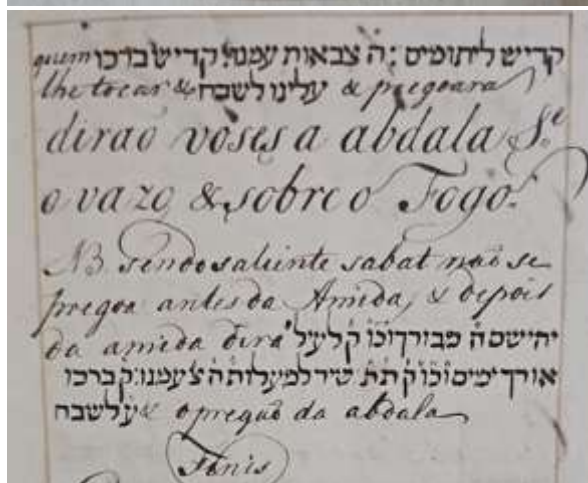 קדיש ליתומים : ה' צבאות עמנו: קדיש ברכו quem
lhe tocar & עלינו לשבח & pregoara
dirao voses a abdala S.e
o vazo & sobre o Fogo.
NB sendo saliente sabat naõ se
pregoa antes da Amida, & depois
da amida dira יהישמה מבורך וכו' ק'לעיל
אורך ימים וכו' ק'ת'ת' שיר למעלות ה'צ'עמנו: ק'ברכו
ע'לשבח & o pregaõ da abdala
Finis